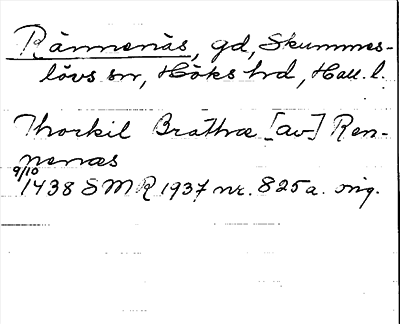 Rännenäs, gd, Skummes-
lövs sn, Höks hd, Hall. l.
Thorkil Brathræ [av] Ren-
nenæs
9/10 1438 SMR 1937 nr. 825a. orig.